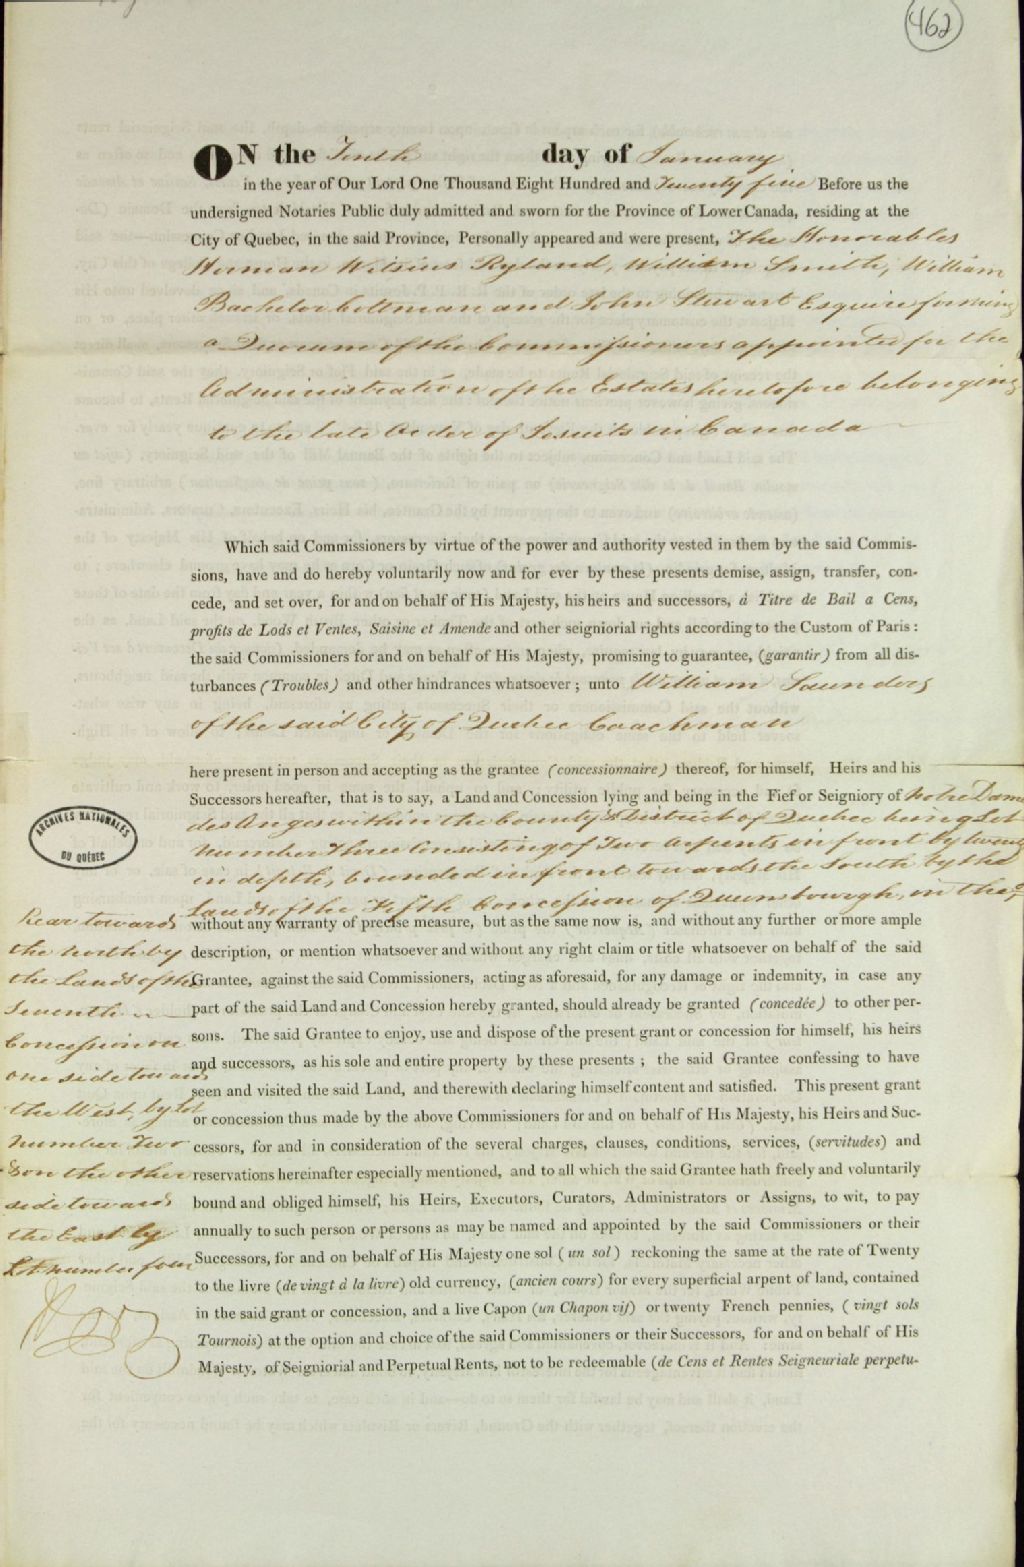 462
ON the Tenth day of January
in the year of Our Lord One Thousand Eight Hundred and Twenty five Before us the
undersigned Notaries Public duly admitted and sworn for the Province of Lower Canada, residing at the
City of Quebec, in the said Province, Personally appeared and were present, The Honorables
Herman Witsius Ryland, William Smith, William
Bachelor Coltman and John Stewart Esquire forming
a Quorum of the Commissioners appointed for the
Administration of the Estates heretofore belonging
to the late Order of Jesuits in Canada
Which said Commissioners by virtue of the power and authority vested in them by the said Commis-
sions, have and do hereby voluntarily now and for ever by these presents demise, assign, transfer, con-
cede, and set over, for and on behalf of His Majesty, his heirs and successors, à Titre de Bail a Cens,
profits de Lods et Ventes, Saisine et Amende and other seigniorial rights according to the Custom of Paris :
the said Commissioners for and on behalf of His Majesty, promising to guarantee, (garantir) from all dis-
turbances (Troubles) and other hindrances whatsoever ; unto William Saunders
of the said City of Quebec Coachman
here present in person and accepting as the grantee (concessionnaire) thereof, for himself, Heirs and his
Successors hereafter, that is to say, a Land and Concession lying and being in the Fief or Seigniory of Notre Dame
des Anges within the County & District of Quebec being Lot
Number Three Consisting of Two Arpents in front by twenty
in depth, bounded in front towards the South by the
Lands of the Fifth Concession of Queensbourgh, in the
without any warranty of precise measure, but as the same now is, and without any further or more ample
description, or mention whatsoever and without any right claim or title whatsoever on behalf of the said
Grantee, against the said Commissioners, acting as aforesaid, for any damage or indemnity, in case any
part of the said Land and Concession hereby granted, should already be granted (concedée) to other per-
sons. The said Grantee to enjoy, use and dispose of the present grant or concession for himself, his heirs
and successors, as his sole and entire property by these presents ; the said Grantee confessing to have
seen and visited the said Land, and therewith declaring himself content and satisfied. This present grant
or concession thus made by the above Commissioners for and on behalf of His Majesty, his Heirs and Suc-
cessors, for and in consideration of the several charges, clauses, conditions, services, (servitudes) and
reservations hereinafter especially mentioned, and to all which the said Grantee hath freely and voluntarily
bound and obliged himself, his Heirs, Executors, Curators, Administrators or Assigns, to wit, to pay
annually to such person or persons as may be named and appointed by the said Commissioners or their
Successors, for and on behalf of His Majesty one sol (un sol) reckoning the same at the rate of Twenty
to the livre (de vingt à la livre) old currency, (ancien cours) for every superficial arpent of land, contained
in the said grant or concession, and a live Capon (un Chapon vif) or twenty French pennies, (vingt sols
Tournois) at the option and choice of the said Commissioners or their Successors, for and on behalf of His
Majesty, of Seigniorial and Perpetual Rents, not to be redeemable (de Cens et Rentes Seigneuriale perpetu-
ARCHIVES NATIONALES
DU QUÉBEC
Rear towards
the north by
the Lands of the
Seventh
Concession on
one side towards
the West, by Lot
number Two
& on the other
side towards
the East by
Lot number four